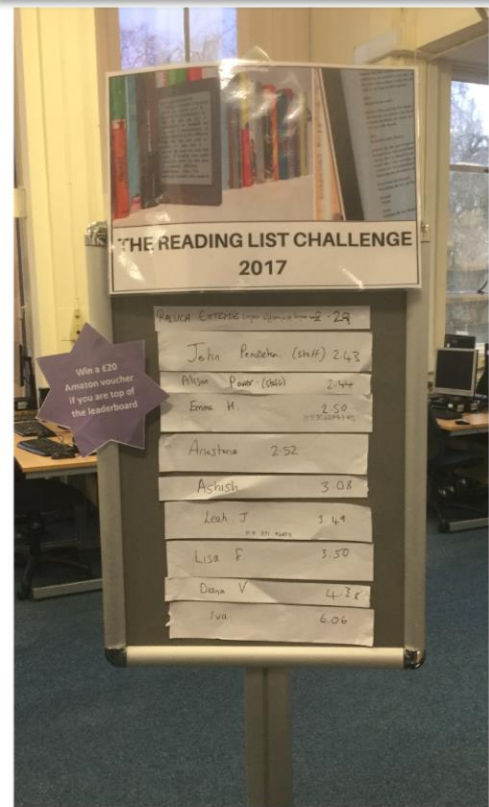 THE READING LIST CHALLENGE
2017
Win a £20
Amazon voucher
if you are top of
the leaderboard
2.29
John Pendleton (staff) 2.43
Alison Power (staff) 2.44
Emma H 2.50
Anastasia 2.52
Ashish 3.08
Leah J 3.49
Lisa F 3.50
Diana V 4.38
Iva 6.06